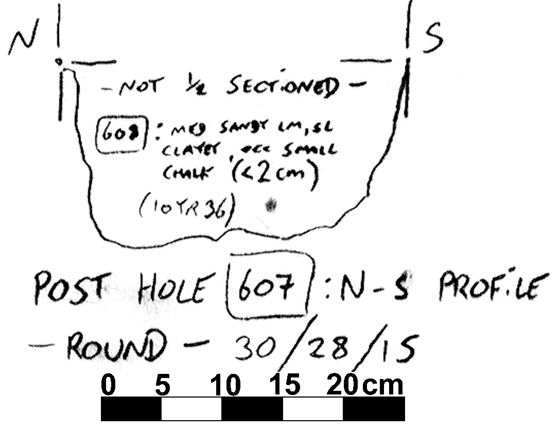 N S
- NOT 1/2 SECTIONED -
608 : MED SANDY LM, SL
CLAYEY, OCC SMALL
CHALK (<2cm)
(10YR36)
POST HOLE 607 : N-S PROFILE
- ROUND - 30/28/15
0 5 10 15 20cm